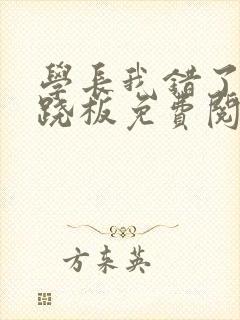 學長我錯了
跷板免費閱
方來英